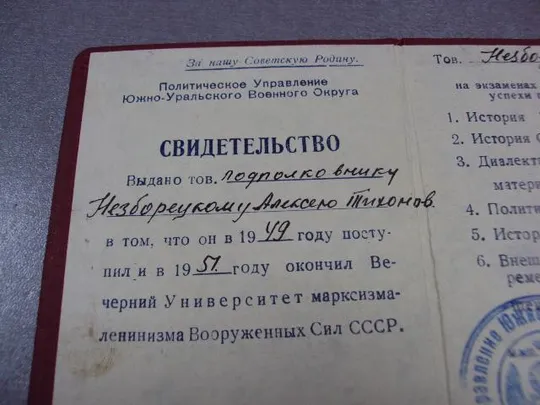 За нашу Советскую Родину.
Политическое Управление
Южно-Уральского Военного Округа
СВИДЕТЕЛЬСТВО
Выдано тов. подполковнику
Незборецкому Алексею Тихонов.
в том, что он в 1949 году посту-
пил и в 1951 году окончил Ве-
черний Университет марксизма-
ленинизма Вооруженных Сил СССР.
Тов. Незбо
на экзаменах
успехи
1. История
2. История
3. Диалект
матери
4. Полити
5. Истор
6. Внеш
реме